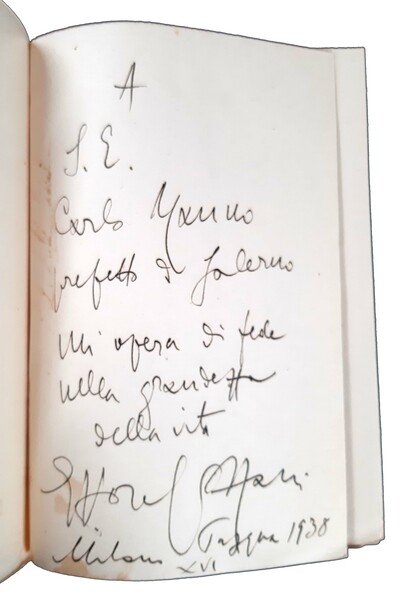 A
S. E.
Carlo Manno
prefetto di Salerno
un' opera di fede
nella grandezza
della vita
Ettore Cozzani
Milano Pasqua 1938
XVI